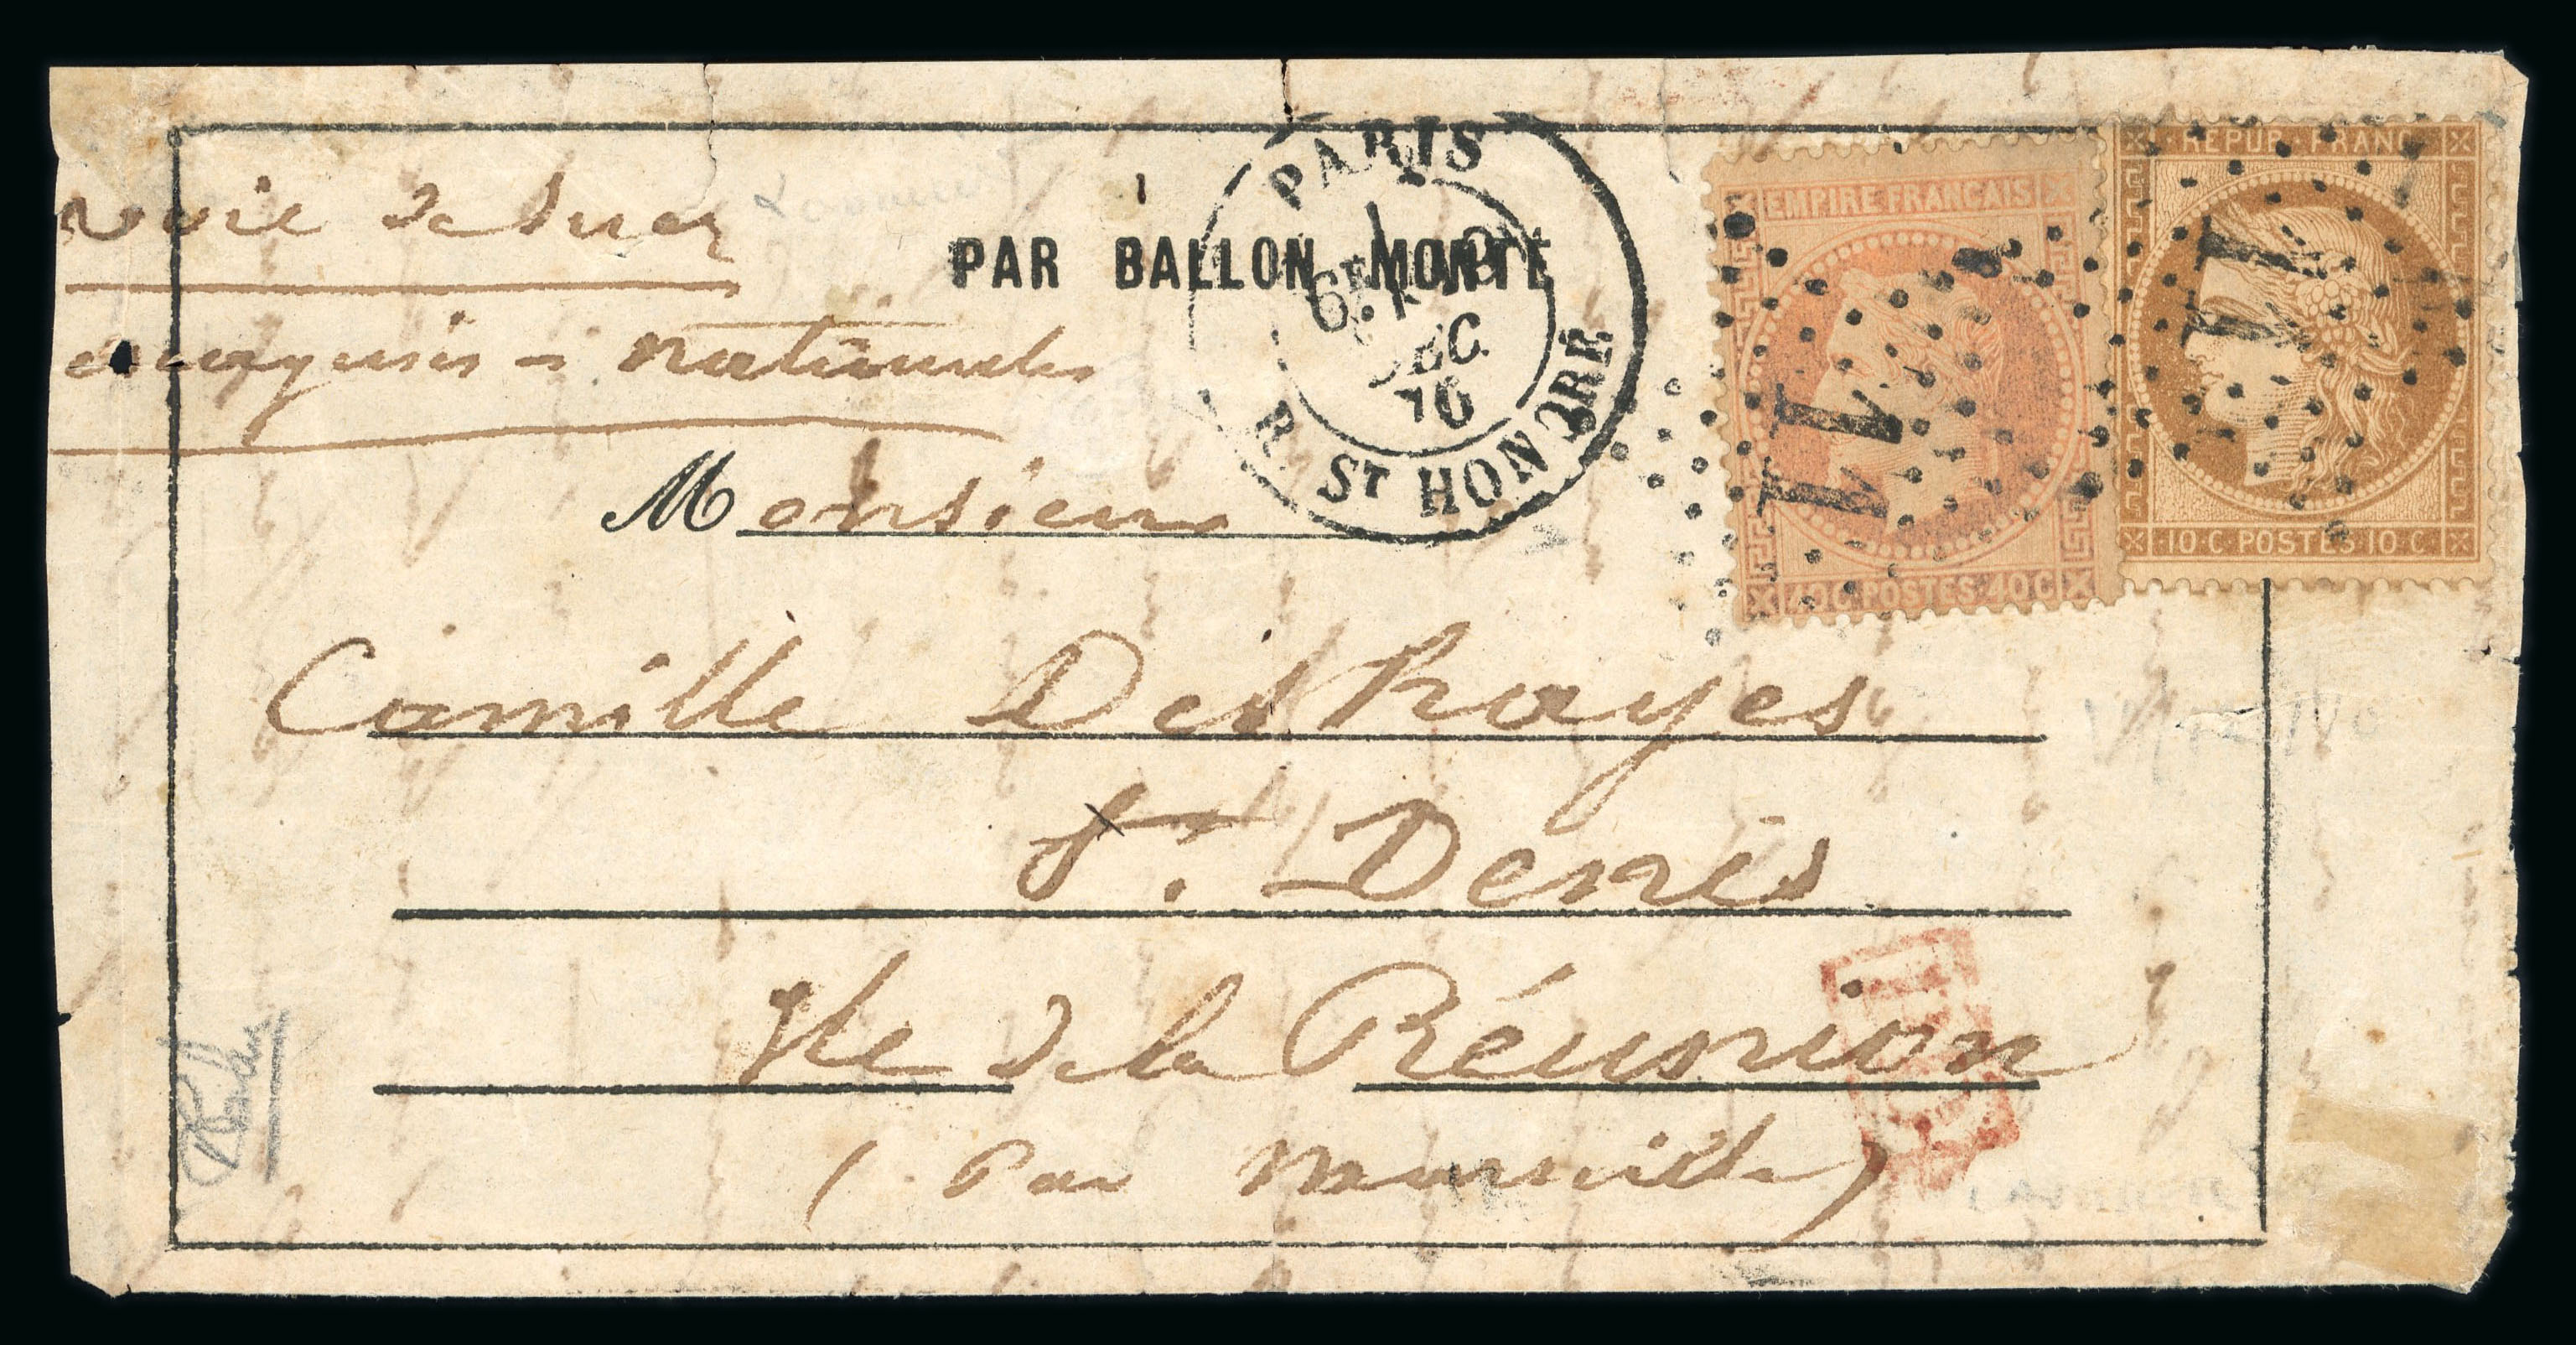 voie de Suez
PAR BALLON MONTÉ
PARIS
6E
DEC
70
R. ST HONORÉ
EMPIRE FRANÇAIS
40 C POSTES 40 C
REPUB. FRANC.
10 C POSTES 10 C
11
11
messageries - nationales
Monsieur
Camille Deshayes
St. Denis
Ile de la Réunion
(Par Marseille)